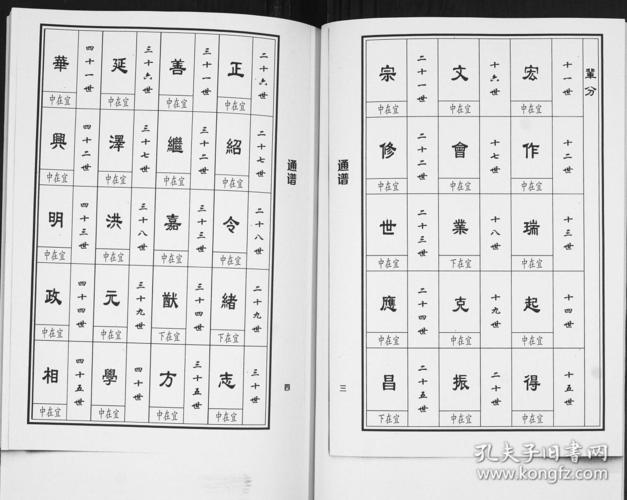 輩分
十一世
宏
宜在中
十二世
作
宜在中
十三世
瑞
宜在中
十四世
起
宜在中
十五世
得
宜在中
十六世
文
宜在中
十七世
會
宜在中
十八世
業
宜在下
十九世
克
宜在中
二十世
振
宜在中
二十一世
宗
宜在中
二十二世
修
宜在中
二十三世
世
宜在中
二十四世
應
宜在中
二十五世
昌
宜在下
通谱
三
二十六世
正
宜在中
二十七世
紹
宜在中
二十八世
令
宜在中
二十九世
緒
宜在下
三十世
志
宜在中
三十一世
善
宜在中
三十二世
繼
宜在中
三十三世
嘉
宜在中
三十四世
猷
宜在下
三十五世
方
宜在中
三十六世
延
宜在中
三十七世
澤
宜在中
三十八世
洪
宜在中
三十九世
元
宜在中
四十世
學
宜在中
四十一世
華
宜在中
四十二世
興
宜在中
四十三世
明
宜在中
四十四世
政
宜在中
四十五世
相
宜在中
通谱
四
孔夫子旧书网
www.kongfz.com